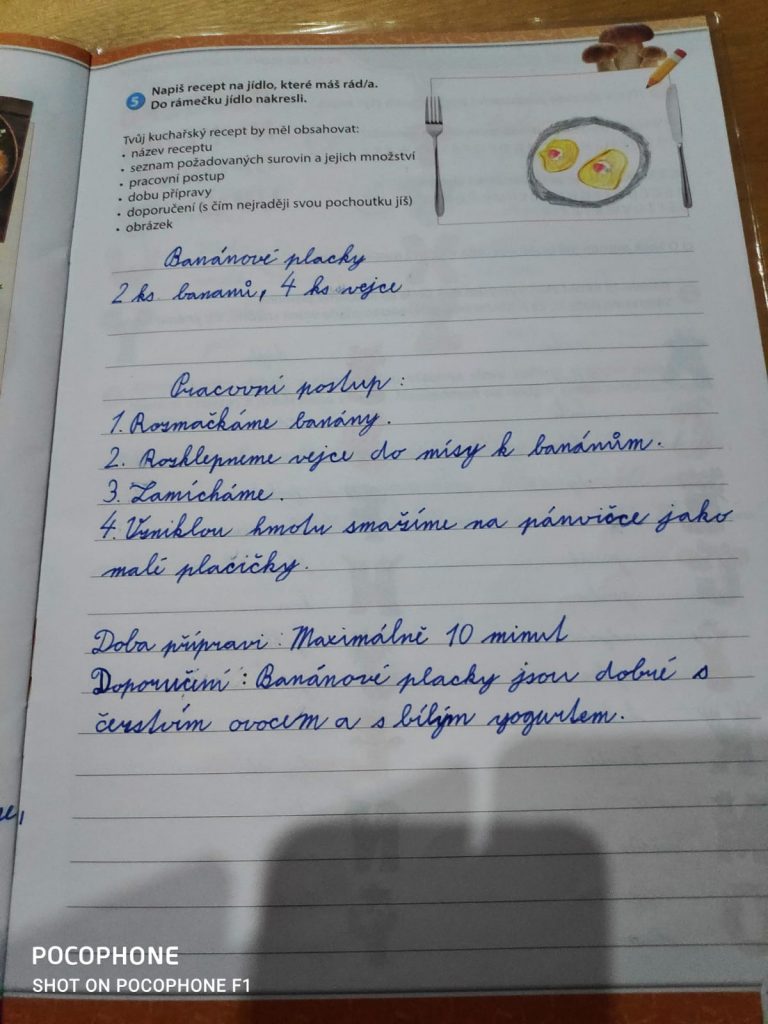 5 Napiš recept na jídlo, které máš rád/a.
Do rámečku jídlo nakresli.
Tvůj kuchařský recept by měl obsahovat:
• název receptu
• seznam požadovaných surovin a jejich množství
• pracovní postup
• dobu přípravy
• doporučení (s čím nejraději svou pochoutku jíš)
• obrázek
Banánové placky
2 ks bananů, 4 ks vejce
Pracovní postup:
1. Rozmačkáme banány.
2. Rozklepneme vejce do mísy k banánům.
3. Zamícháme.
4. Vzniklou hmotu smažíme na pánvičce jako
malé placičky.
Doba přípravi: Maximálně 10 minut
Doporučení: Banánové placky jsou dobré s
čerstvím ovocem a s bílým yogurtem.
POCOPHONE
SHOT ON POCOPHONE F1